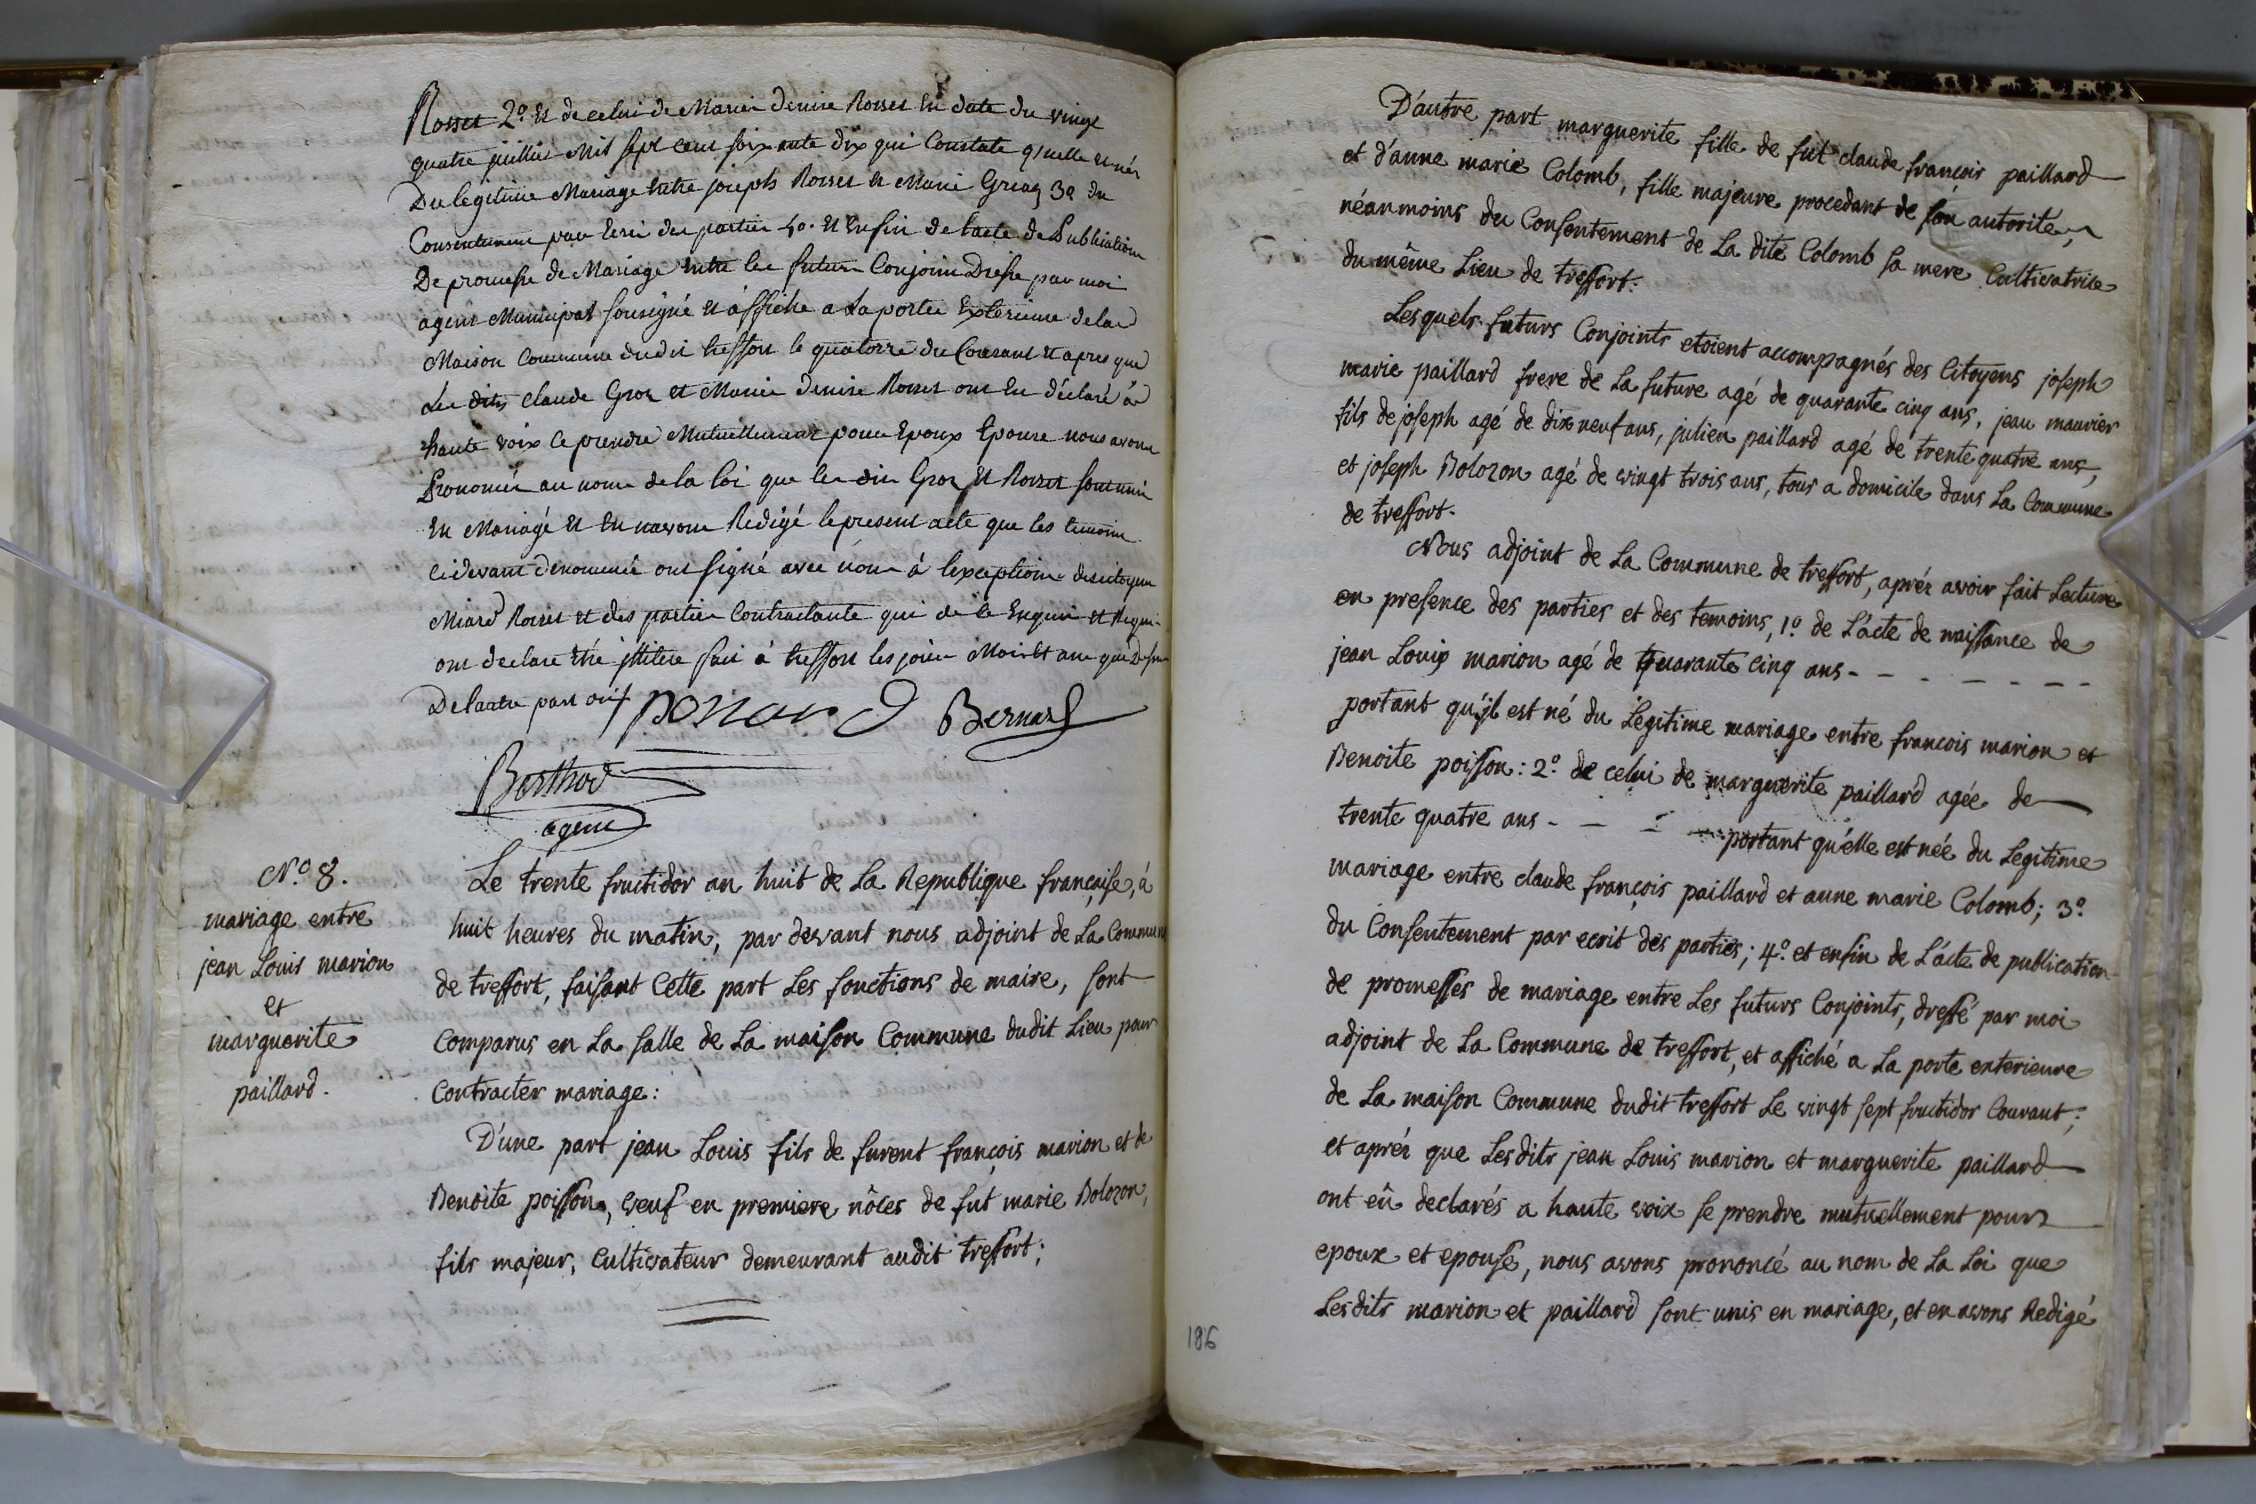 Rosset 2º. Et de celui de Marie Denise Rosset En date du vingt
quatre juillet Mil sept cent soixante dix qui Constate qu'elle est née
Du légitime Mariage Entre joseph Rosset et Marie Groz 3º du
Consentement par Ecrit des parties 4º. Et Enfin de l'acte de Publication
De promesse de Mariage Entre les futurs Conjoins Dressé par moi
agent Municipal soussigné et affiché a la porte Exterieure de la
Maison Commune dudit tressort le quatorze du Courant Et apres que
Les dits claude Groz et Marie Denise Rosset ont Eu déclaré à
haute voix se prendre Mutuellement pour Epoux Epouse nous avons
Prononcé au nom de la loi que les dits Groz Et Rosset sont unis
En Mariagé Et En navons Redigé le present acte que les temoins
cidevant dénommé ont signé avec nous à l'exception des citoyens
Miard Rosset et des parties Contractante qui de ce Enquis et Requis
ont declaré être illitéré fait à tressort les jours Mois et an que Dessus
De lautre part
ponard Bernard
Berthod
agent
Nº. 8.
mariage entre
jean Louis marion
et
marguerite
paillard.
Le trente fructidor an huit de La Republique française, à
huit heures du matin, par devant nous adjoint de La Commune
de treffort, faisant Cette part Les fonctions de maire, sont
Comparus en La salle de La maison Commune dudit Lieu pour
Contracter mariage:
D'une part jean Louis fils de furent françois marion et de
Benoite poisson, veuf en premiere nôces de fut marie Bolozon,
fils majeur, Cultivateur demeurant audit treffort;
D'autre part marguerite fille de fut claude françois paillard
et d'anne marie Colomb, fille majeure procedant de son autorité,
néanmoins du Consentement de La dite Colomb sa mere Cultivatrice
du même Lieu de treffort.
Lesquels futurs Conjoints etoient accompagnés des Citoyens joseph
marie paillard frere de La future agé de quarante cinq ans, jean mauvier
fils de joseph agé de dix neuf ans, julien paillard agé de trente quatre ans,
et joseph Bolozon agé de vingt trois ans, tous a domicile dans La Commune
de treffort.
Nous adjoint de La Commune de treffort, aprés avoir fait Lecture
en presence des parties et des temoins, 1º. de L'acte de naissance de
jean Louis marion agé de quarante Cinq ans - - - - - - -
portant qu'il est né du Légitime mariage entre francois marion et
Benoite poisson: 2º. de celui de marguerite paillard agée de
trente quatre ans - - - portant qu'elle est née du Legitime
mariage entre claude françois paillard et anne marie Colomb; 3º.
du Consentement par ecrit des parties; 4º. et enfin de L'acte de publication
de promesses de mariage entre Les futurs Conjoints, dressé par moi
adjoint de La Commune de treffort, et affiché a La porte exterieure
de La maison Commune dudit treffort Le vingt sept fructidor Courant;
et aprés que Lesdits jean Louis marion et marguerite paillard
ont eû declarés a haute voix se prendre mutuellement pour
epoux et epouse, nous avons prononcé au nom de La Loi que
Lesdits marion et paillard sont unis en mariage, et en avons Redigé
186